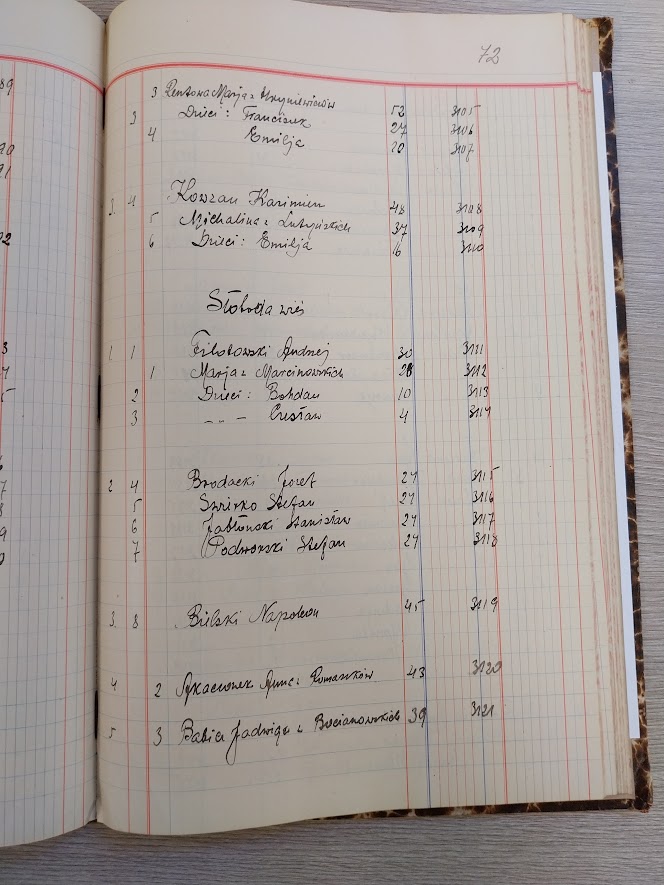 89
90
91
92
72
3 Marja z 52 3105
3 Dzieci: Franciszek 27 3106
4 Emilja 20 3107
3. 4 Kowzan Kazimierz 48 3108
5 Michalina z 37 3109
6 Dzieci: Emilja 16 3110
Słoboda wieś
1. 1 Filotowski Andrzej 30 3111
1 Marja z Marcinowskich 28 3112
2 Dzieci: Bohdan 10 3113
3 – – – Czesław 4 3114
2 4 Brodacki Józef 27 3115
5 Stefan 27 3116
6 Jabłoński Stanisław 27 3117
7 Podworski Stefan 27 3118
3. 8 Bielski Napoleon 45 3119
4 2 Anna z 43 3120
5 3 Babicz Jadwiga z Bocianowskich 39 3121